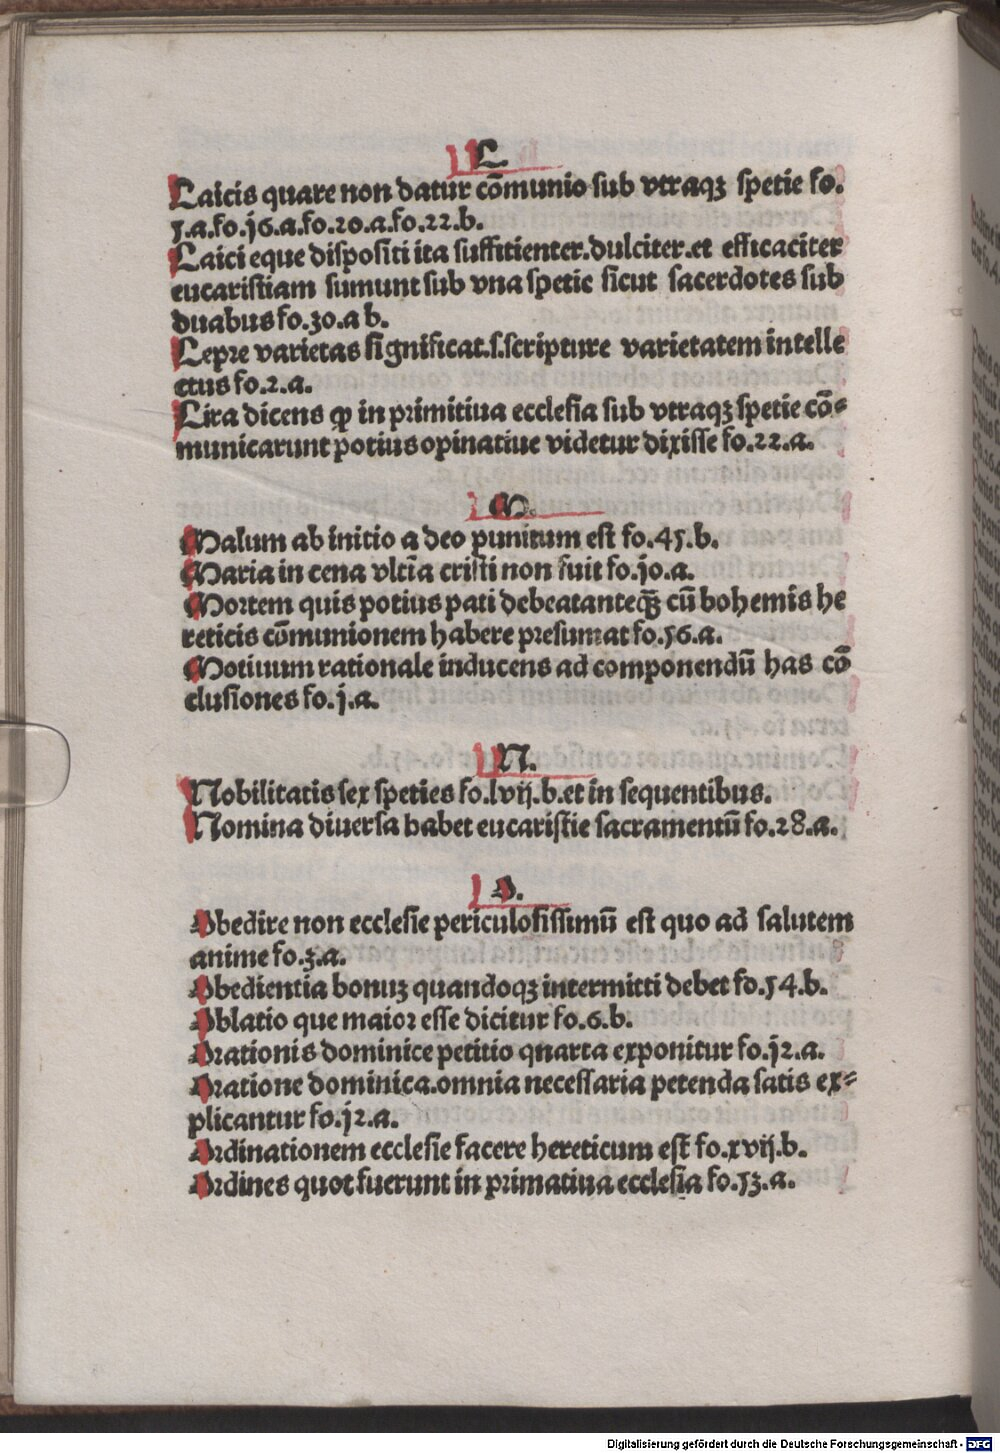 L.
Laicis quare non datur cōmunio sub vtraqꝫ spetie fo.
5.a.fo.j6.a.fo.20.a.fo.22.b.
Laici eque dispositi ita suffitienter.dulciter.et efficaciter
eucaristiam sumunt sub vna spetie sicut sacerdotes sub
duabus fo.30.a b.
Lepre varietas significat.s.scripture varietatem intelle
ctus fo.2.a.
Lira dicens ꝙ in primitiua ecclesia sub vtraqꝫ spetie cō⸗
municarunt potius opinatiue videtur dixisse fo.22.a.
M.
Malum ab initio a deo punitum est fo.45.b.
Maria in cena vltīa cristi non fuit fo.j0.a.
Mortem quis potius pati debeat anteqꝫ̄ cū bohemis he
reticis cōmunionem habere presumat fo.56.a.
Motiuum rationale inducens ad componendū has cō
clusiones fo.j.a.
N.
Nobilitatis sex speties fo.lvij.b.et in sequentibus.
Nomina diuersa habet eucaristie sacramentū fo.28.a.
O.
Obedire non ecclesie periculosissimū est quo ad salutem
anime fo.3.a.
Obedientia bonuꝫ quandoqꝫ intermitti debet fo.54.b.
Oblatio que maior esse dicitur fo.6.b.
Orationis dominice petitio quarta exponitur fo.j2.a.
Oratione dominica.omnia necessaria petenda satis ex⸗
plicantur fo.j2.a.
Ordinationem ecclesie facere hereticum est fo.xvij.b.
Ordines quot fuerunt in primatiua ecclesia fo.53.a.
Digitalisierung gefördert durch die Deutsche Forschungsgemeinschaft - DFG